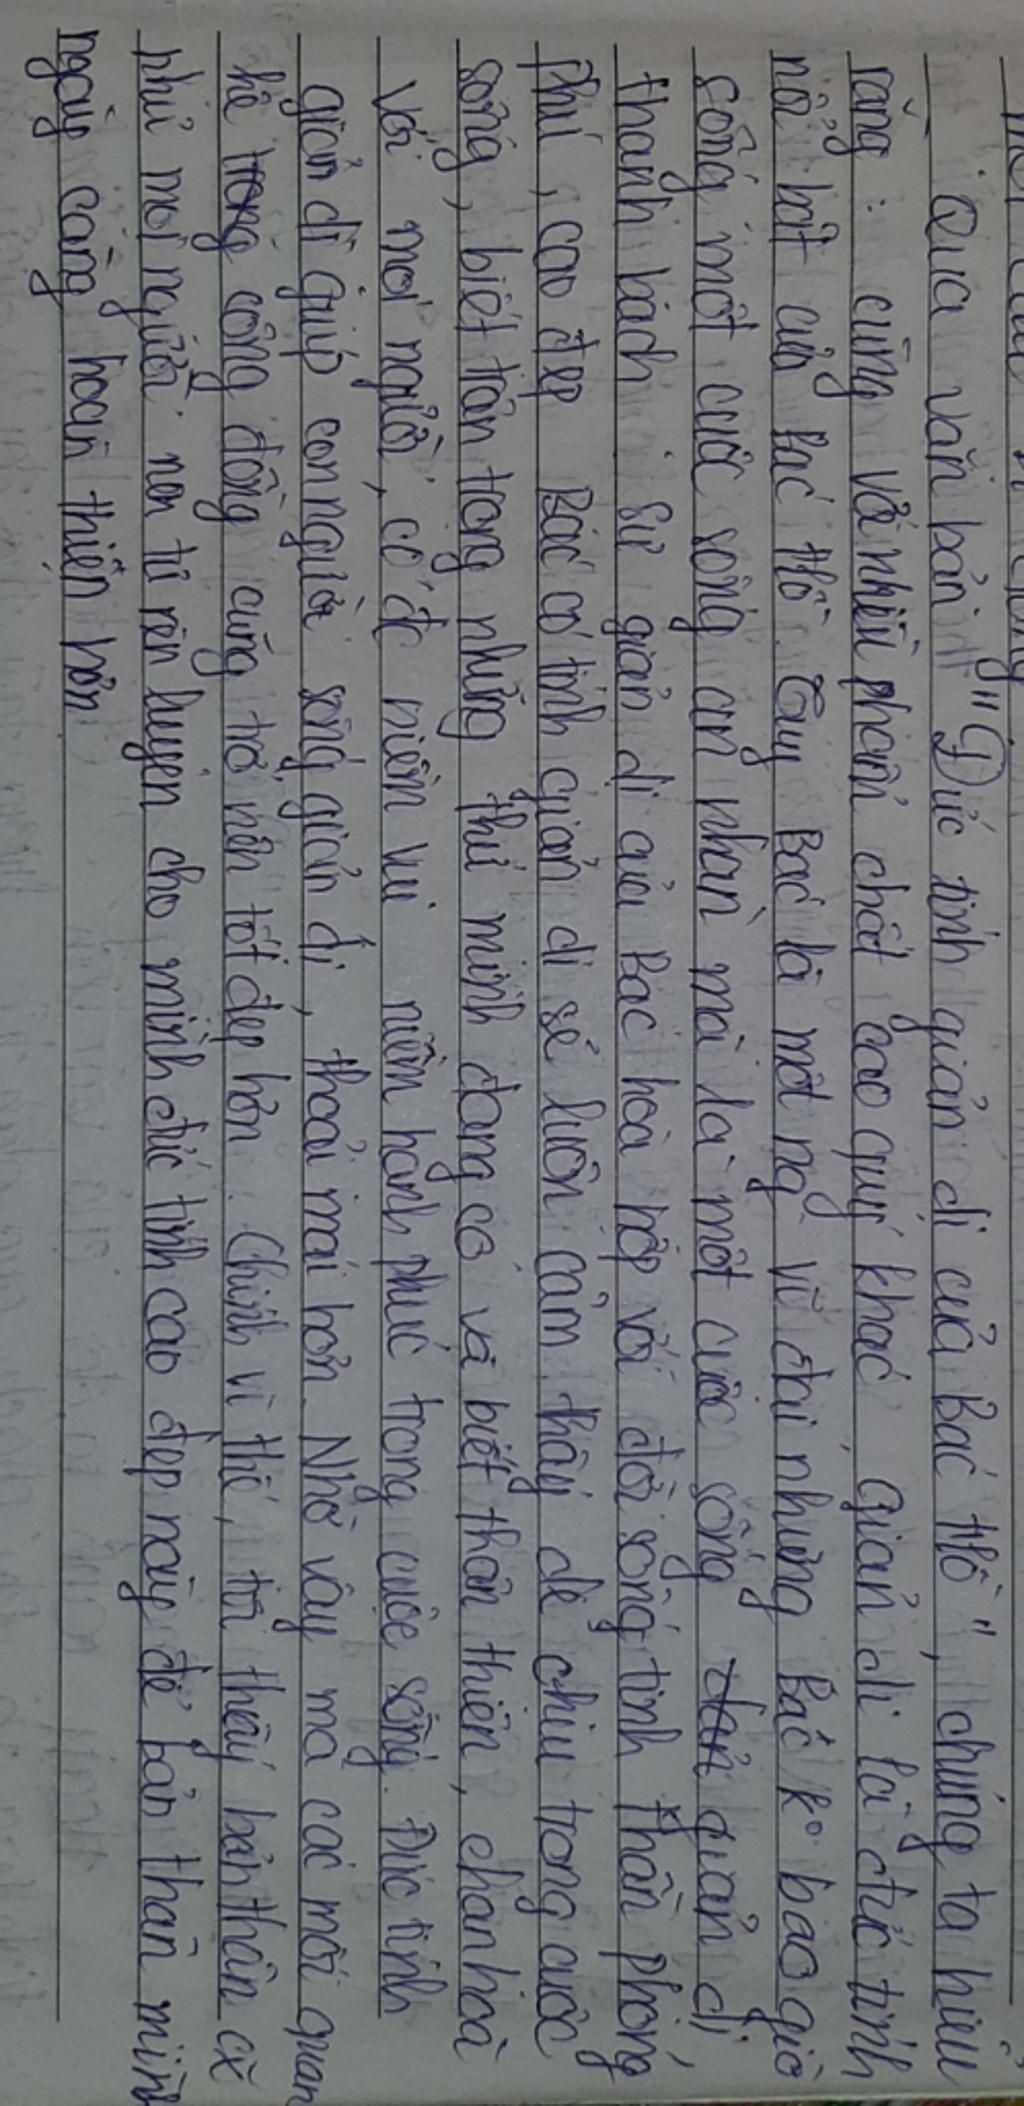 Qua văn bản "Đức tính giản dị của Bác Hồ", chúng ta hiểu
rằng: cùng với nhiều phẩm chất cao quý khác, giản dị là đức tính
nổi bật của Bác Hồ. Tuy Bác là một ng vĩ đại nhưng Bác kº bao giờ
sống một cuộc sống an nhàn mà là một cuộc sống giản dị,
thanh bạch. Sự giản dị của Bác hoà hợp với đời sống tinh thần phong
phú, cao đẹp. Bác có tính giản dị sẽ luôn cảm thấy dễ chịu trong cuộc
sống, biết trân trọng những thứ mình đang có và biết thân thiện, chan hoà
với mọi người, có đc niềm vui niềm hạnh phúc trong cuộc sống. Đức tính
giản dị giúp con người sống giản dị, thoải mái hơn. Nhờ vậy mà các mối quan
hệ trong cộng đồng cũng trở nên tốt đẹp hơn. Chính vì thế, tôi thấy bản thân cx
như mọi người nên tự rèn luyện cho mình đức tính cao đẹp này để bản thân mình
ngày càng hoàn thiện hơn